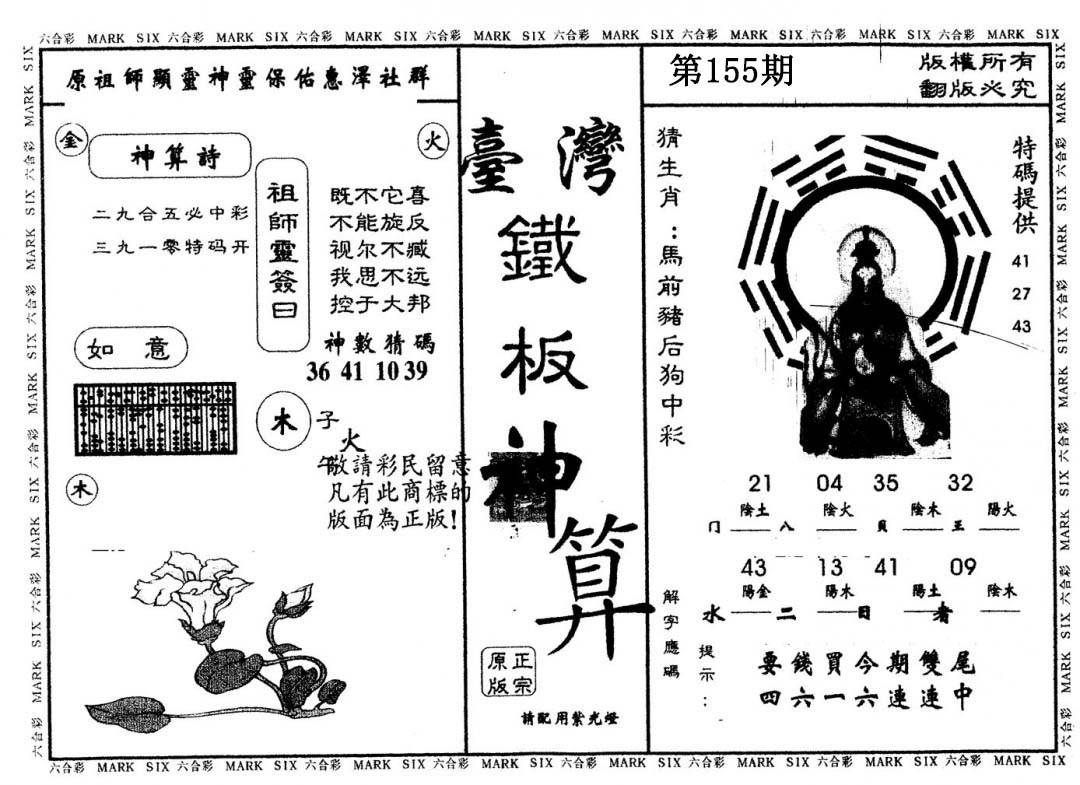 六合彩 MARK SIX 六合彩 MARK SIX 六合彩 MARK SIX 六合彩 MARK SIX 六合彩 MARK SIX 六合彩 MARK SIX 六合彩 MARK SIX 六合彩 MARK SIX
原祖師顯靈神靈保佑惠澤社群
金
火
神算詩
二九合五必中彩
三九一零特码开
祖師靈簽曰
既不它喜
不能旋反
视尔不臧
我思不远
控子大邦
神數猜碼
36 41 10 39
如意
木
子
火
午敬請彩民留意
凡有此商標的
版面為正版!
木
臺灣
鐵
板
神
算
正宗
原版
請配用紫光燈
第155期
版權所有
翻版必究
猜生肖:馬前豬后狗中彩
特碼提供
41
27
43
21 04 35 32
陰土 陰火 陰木 陽火
门 八 貝 王
43 13 41 09
陽金 陽木 陽土 陰木
水 二 日 者
解字應碼
提示:
要錢買今期雙尾
四六一六連連中
六合彩 MARK SIX 六合彩 MARK SIX 六合彩 MARK SIX 六合彩 MARK SIX 六合彩 MARK SIX 六合彩 MARK SIX 六合彩 MARK SIX 六合彩 MARK SIX